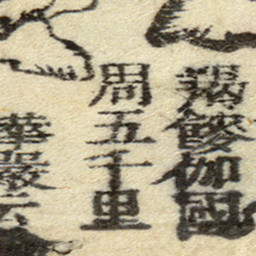 羯餕伽國
周五千里
華嚴云